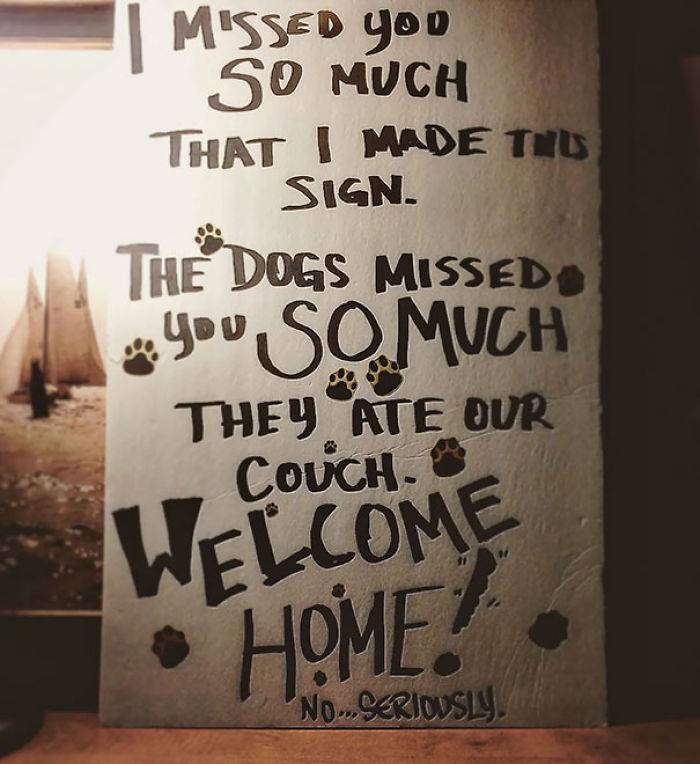 I MISSED YOU
SO MUCH
THAT I MADE THIS
SIGN.
THE DOGS MISSED
YOU SO MUCH
THEY ATE OUR
COUCH.
WELCOME
HOME!
NO...SERIOUSLY.